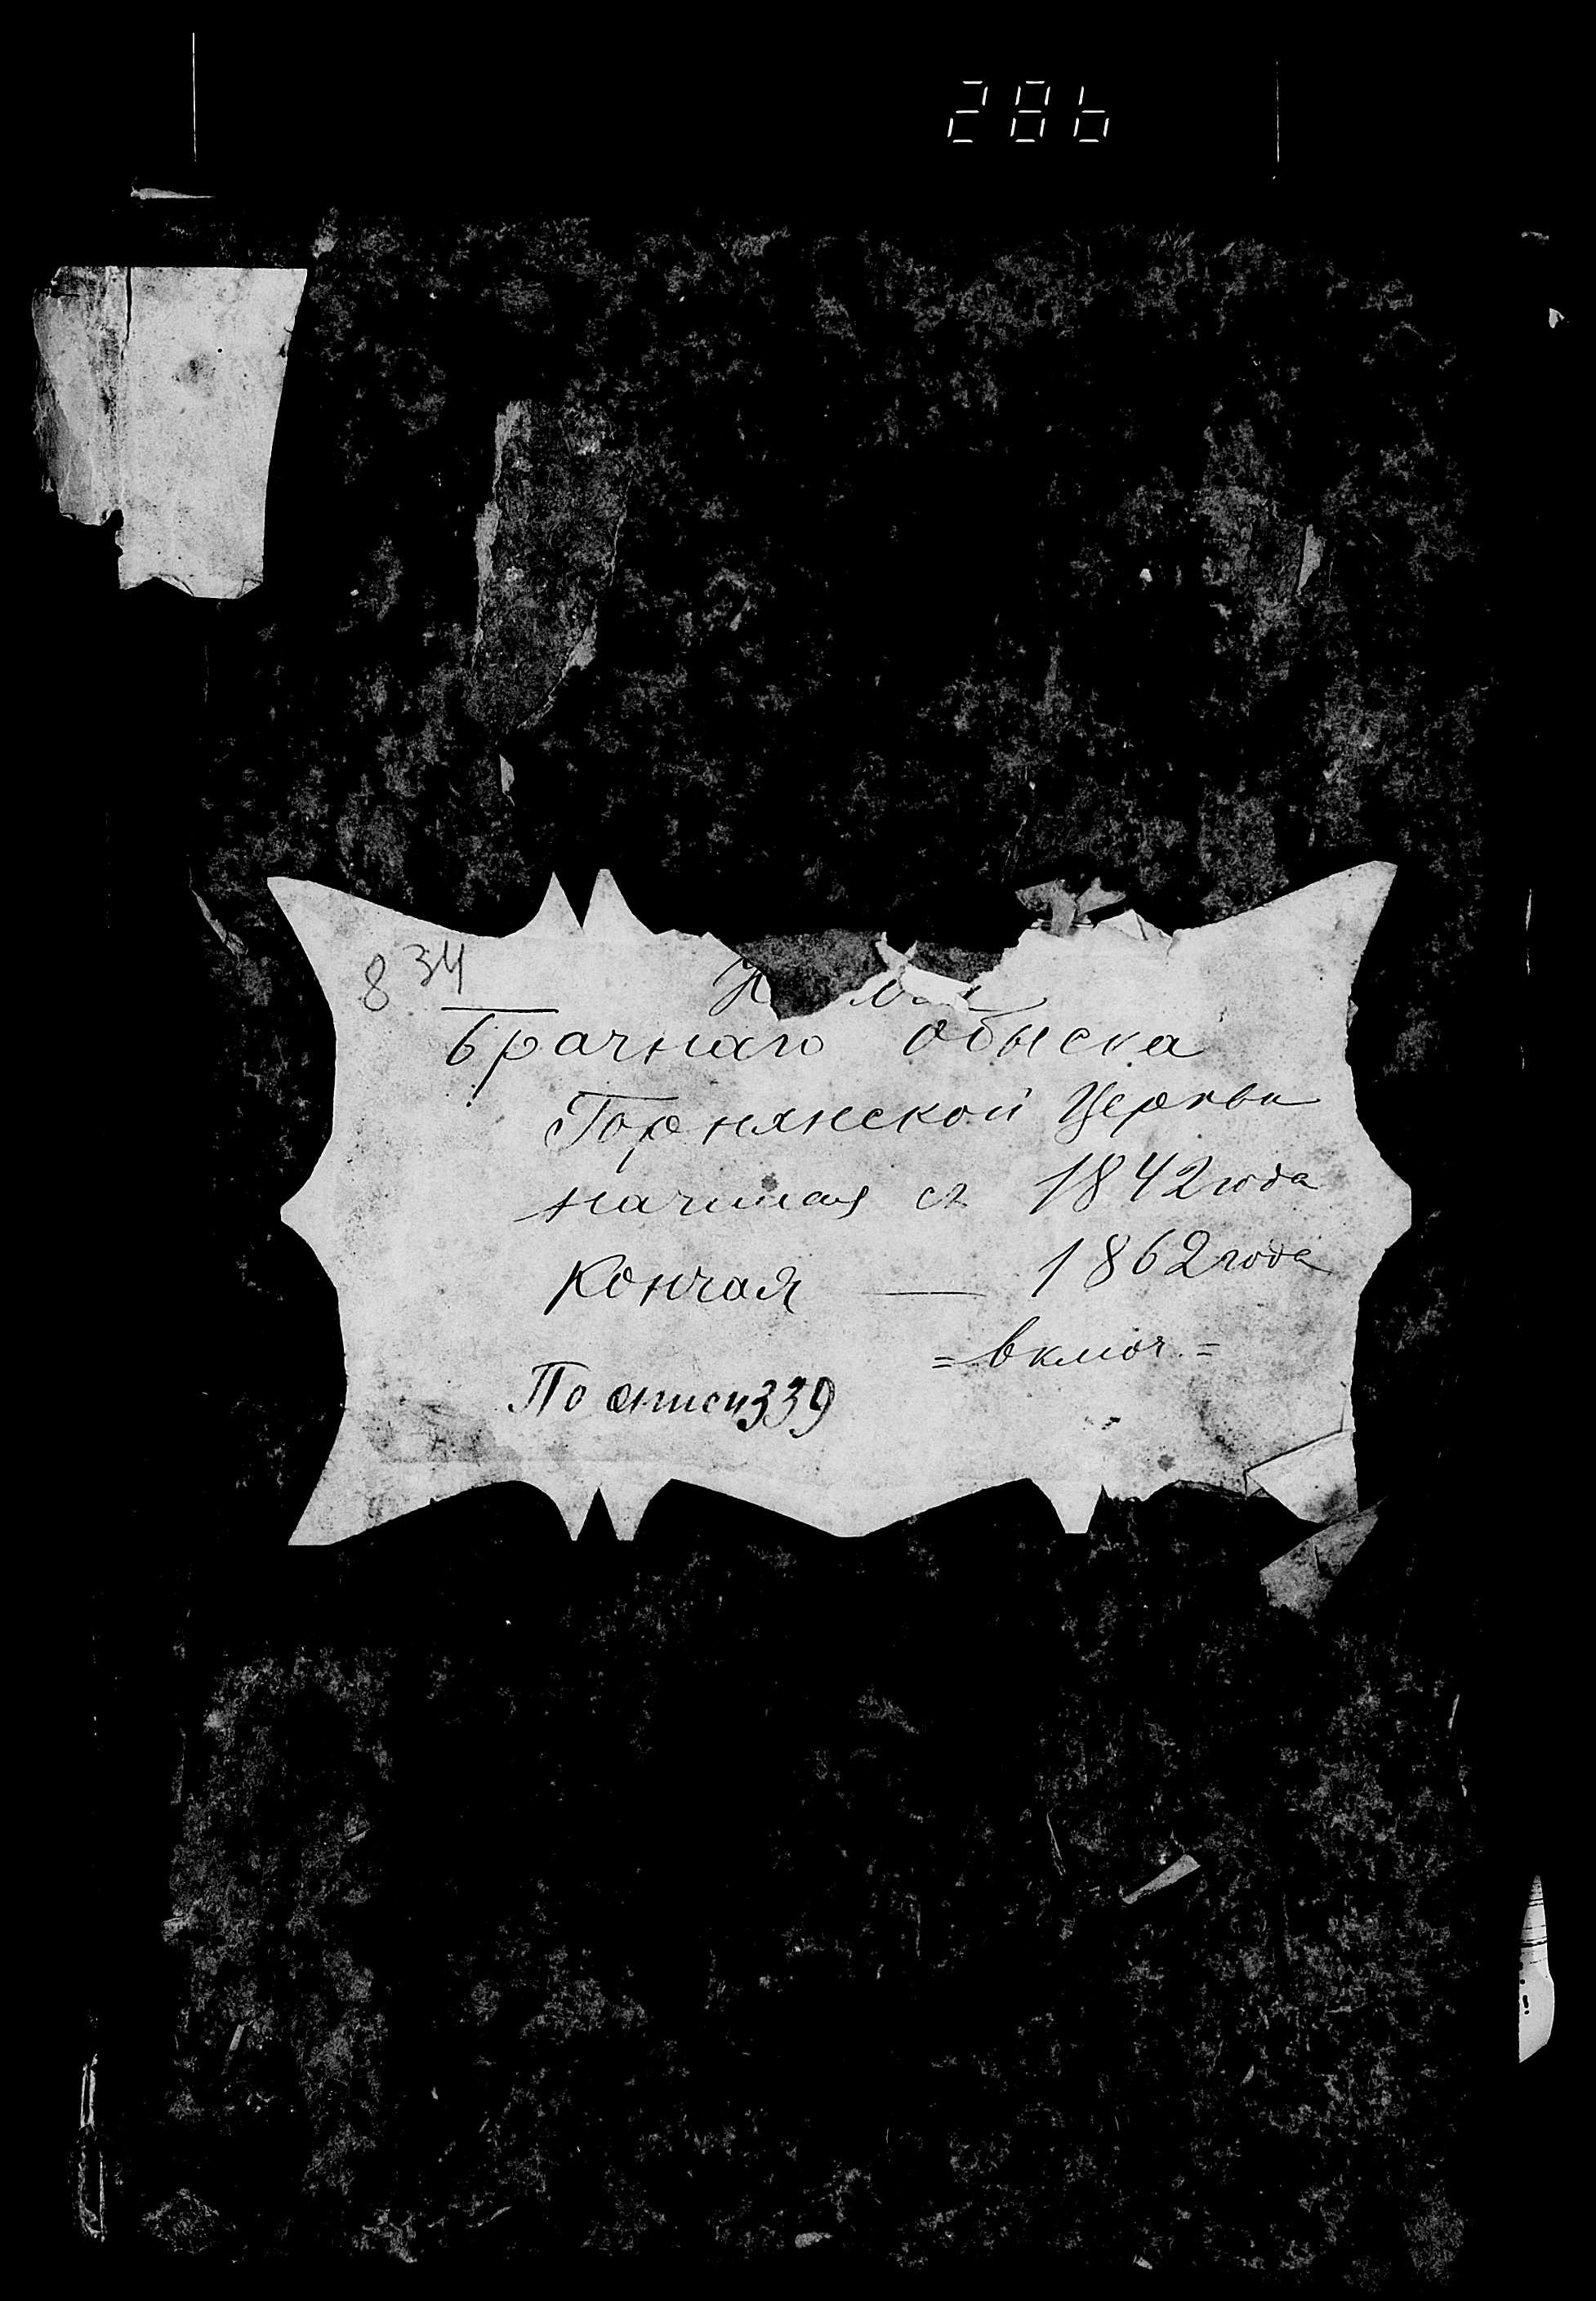 286
8 34
Брачнаго Обыска
Горнянской Церкви
начиная съ 1842 года
Кончая — 1862 года
= включ. =
По описи 339